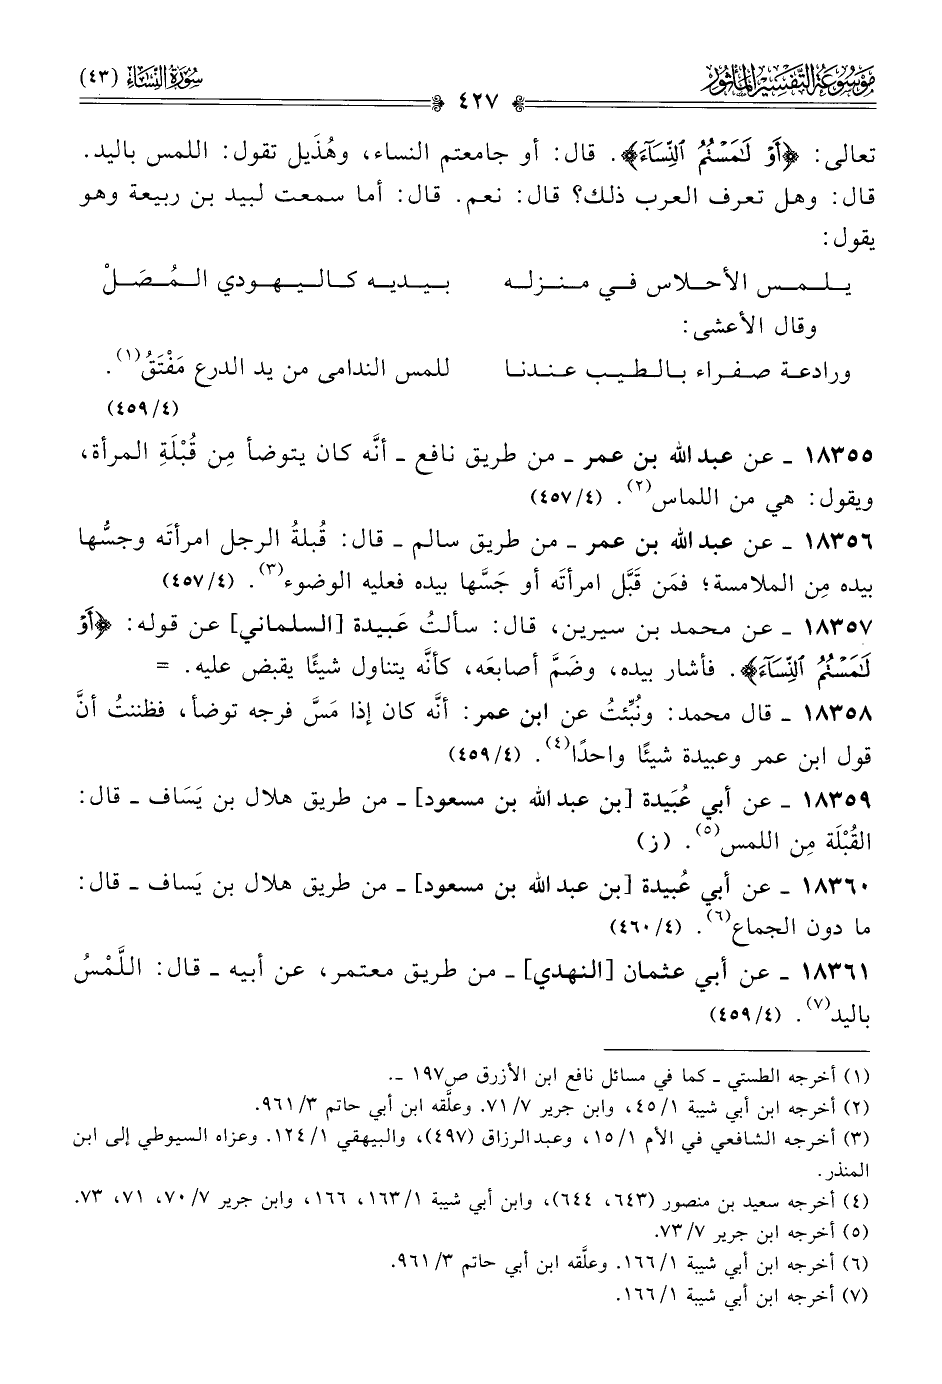 مَوْسُوعَة التَّفْسِير المَأثُور
٤٢٧
سُورَةُ النِّسَاءِ (٤٣)
تعالى: ﴿أَوْ لَٰمَسْتُمُ ٱلنِّسَآءَ﴾. قال: أو جامعتم النساء، وهُذَيل تقول: اللمس باليد.
قال: وهل تعرف العرب ذلك؟ قال: نعم. قال: أما سمعت لبيد بن ربيعة وهو
يقول:
يلمس الأحلاس في منزله بيديه كاليهودي المُصَلْ
وقال الأعشى:
ورادعة صفراء بالطيب عندنا للمس الندامى من يد الدرع مَفْتَقُ(١).
(٤/٤٥٩)
١٨٣٥٥ ـ عن عبد الله بن عمر ـ من طريق نافع ـ أنَّه كان يتوضأ مِن قُبْلَةِ المرأة،
ويقول: هي من اللماس(٢). (٤/٤٥٧)
١٨٣٥٦ ـ عن عبد الله بن عمر ـ من طريق سالم ـ قال: قُبلةُ الرجل امرأتَه وجسُّها
بيده مِن الملامسة؛ فمَن قَبَّل امرأتَه أو جَسَّها بيده فعليه الوضوء(٣). (٤/٤٥٧)
١٨٣٥٧ ـ عن محمد بن سيرين، قال: سألتُ عَبيدة [السلماني] عن قوله: ﴿أَوْ
لَٰمَسْتُمُ ٱلنِّسَآءَ﴾. فأشار بيده، وضَمَّ أصابعَه، كأنَّه يتناول شيئًا يقبض عليه. =
١٨٣٥٨ ـ قال محمد: ونُبِّئتُ عن ابن عمر: أنَّه كان إذا مَسَّ فرجه توضأ، فظننتُ أنَّ
قول ابن عمر وعبيدة شيئًا واحدًا(٤). (٤/٤٥٩)
١٨٣٥٩ ـ عن أبي عُبَيدة [بن عبد الله بن مسعود] ـ من طريق هلال بن يَسَاف ـ قال:
القُبْلَة مِن اللمس(٥). (ز)
١٨٣٦٠ ـ عن أبي عُبيدة [بن عبد الله بن مسعود] ـ من طريق هلال بن يَساف ـ قال:
ما دون الجماع(٦). (٤/٤٦٠)
١٨٣٦١ ـ عن أبي عثمان [النهدي] ـ من طريق معتمر، عن أبيه ـ قال: اللَّمْسُ
باليد(٧). (٤/٤٥٩)
(١) أخرجه الطستي ـ كما في مسائل نافع ابن الأزرق ص١٩٧ ـ.
(٢) أخرجه ابن أبي شيبة ١/٤٥، وابن جرير ٧/٧١. وعلَّقه ابن أبي حاتم ٣/٩٦١.
(٣) أخرجه الشافعي في الأم ١/١٥، وعبد الرزاق (٤٩٧)، والبيهقي ١/١٢٤. وعزاه السيوطي إلى ابن
المنذر.
(٤) أخرجه سعيد بن منصور (٦٤٣، ٦٤٤)، وابن أبي شيبة ١/١٦٣، ١٦٦، وابن جرير ٧/٧٠، ٧١، ٧٣.
(٥) أخرجه ابن جرير ٧/٧٣.
(٦) أخرجه ابن أبي شيبة ١/١٦٦. وعلَّقه ابن أبي حاتم ٣/٩٦١.
(٧) أخرجه ابن أبي شيبة ١/١٦٦.